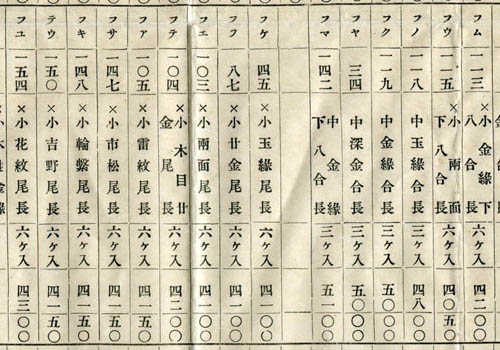 フム 一一三 ×小 縁下八合 長 六ケ入 四〇〇〇
フウ 一一五 ×小兩面下八合長 六ケ入 四〇五〇
フノ 一一八 中玉縁合長 三ケ入 四八〇〇
フク 一一九 中金縁合長 三ケ入 五〇〇〇
フヤ 三四 中深金合長 三ケ入 五〇〇〇
フマ 一四二 中金縁下八合長 三ケ入 五一〇〇
フケ 四五 ×小玉縁尾長 六ケ入 四一〇〇
フフ 八七 ×小廿金尾長 六ケ入 四一〇〇
フエ 一〇三 ×小兩面尾長 六ケ入 四一〇〇
フテ 一〇四 ×小木目廿金尾長 六ケ入 四二〇〇
フア 一〇五 ×小雷紋尾長 六ケ入 四一五〇
フサ 四七 ×小市松尾長 六ケ入 四一五〇
フキ 一四八 ×小輪繋尾長 六ケ入 四一五〇
テウ 一五〇 ×小吉野尾長 六ケ入 四一五〇
フユ 一五四 ×小花紋尾長 六ケ入 四三〇〇